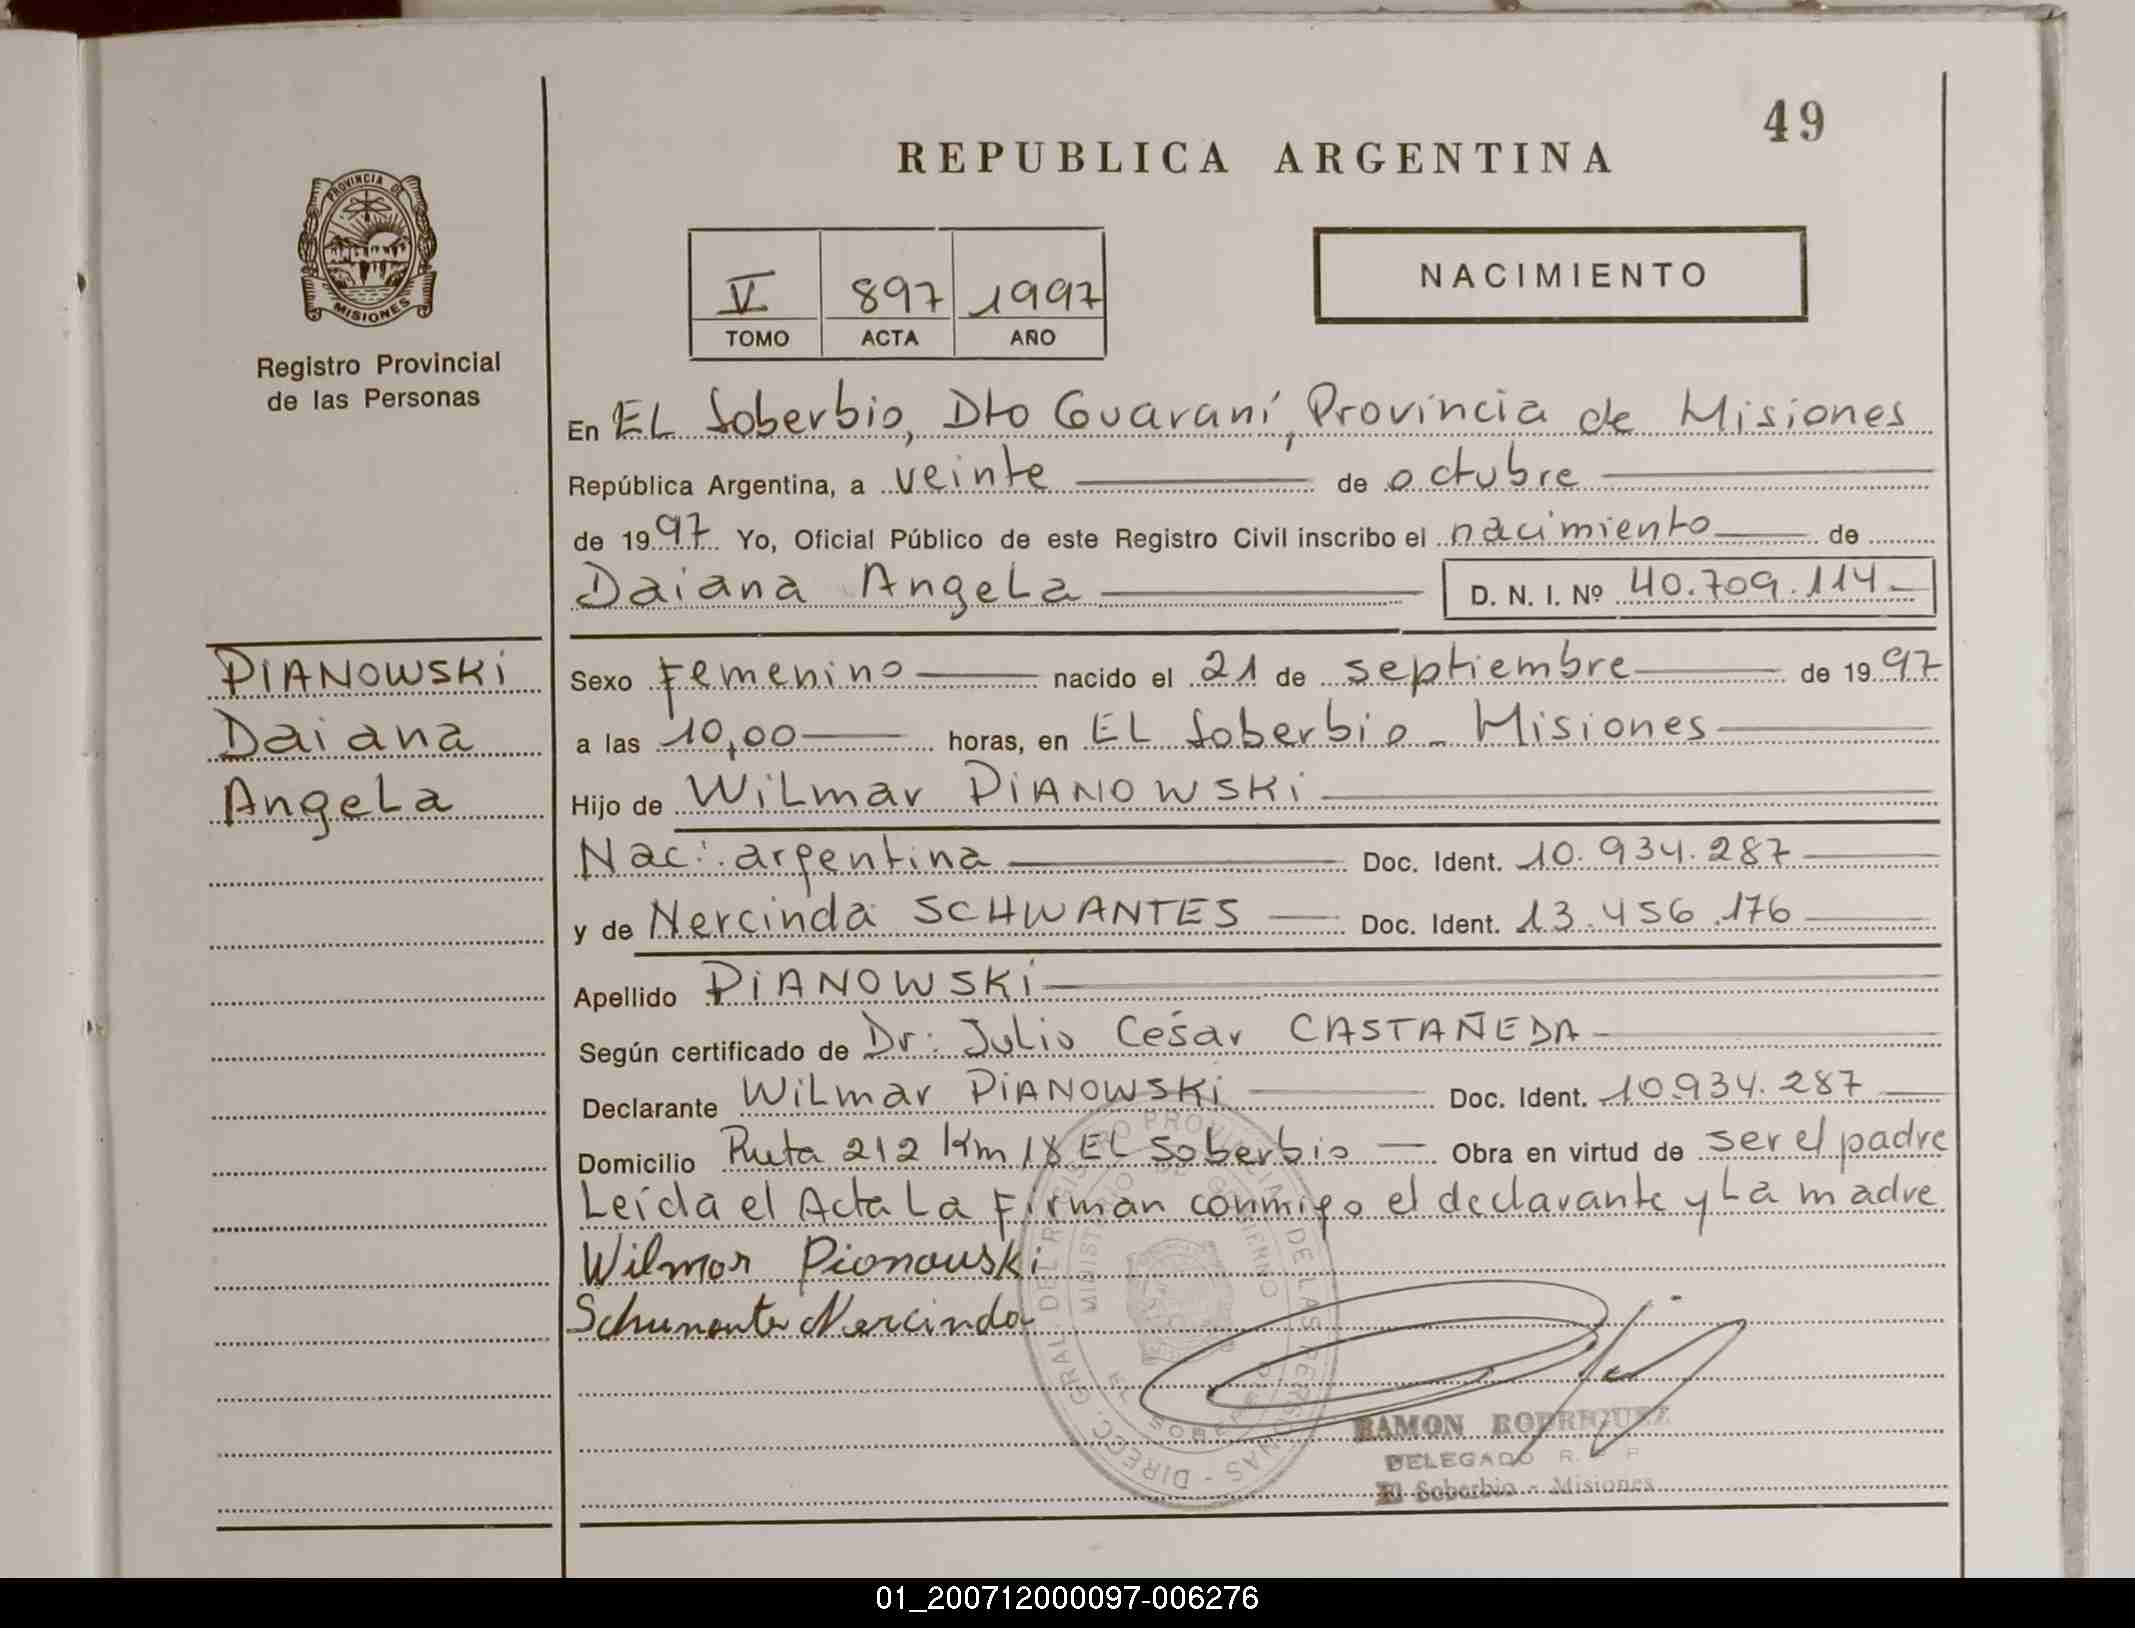 49
REPUBLICA ARGENTINA
PROVINCIA DE
MISIONES
Registro Provincial
de las Personas
V 897 1997
TOMO ACTA AÑO
NACIMIENTO
En EL Soberbio, Dto Guaraní, Provincia de Misiones
República Argentina, a veinte de octubre
de 1997 Yo, Oficial Público de este Registro Civil inscribo el nacimiento de
Daiana Angela D. N. I. Nº 40.709.114
PIANOWSKi
Daiana
Angela
Sexo Femenino nacido el 21 de septiembre de 1997
a las 10,00 horas, en EL Soberbio - Misiones
Hijo de Wilmar PiANOWSKi
Nac: argentina Doc. Ident. 10.934.287
y de Nercinda SCHWANTES Doc. Ident. 13.456.176
Apellido PiANOWSKi
Según certificado de Dr: Julio César CASTAÑEDA
Declarante Wilmar PiANOWSKi Doc. Ident. 10.934.287
Domicilio Ruta 212 Km 18 EL Soberbio Obra en virtud de ser el padre
Leída el Acta La Firman conmigo el declarante y La madre
Wilmar Pianouski
Nercinda
DIRECC. GRAL. DEL REGISTRO PROVINCIAL DE LAS PERSONAS
MINISTERIO DE GOBIERNO
EL SOBERBIO
RAMON RODRIGUEZ
DELEGADO R. P.
El Soberbio - Misiones
01_200712000097-006276